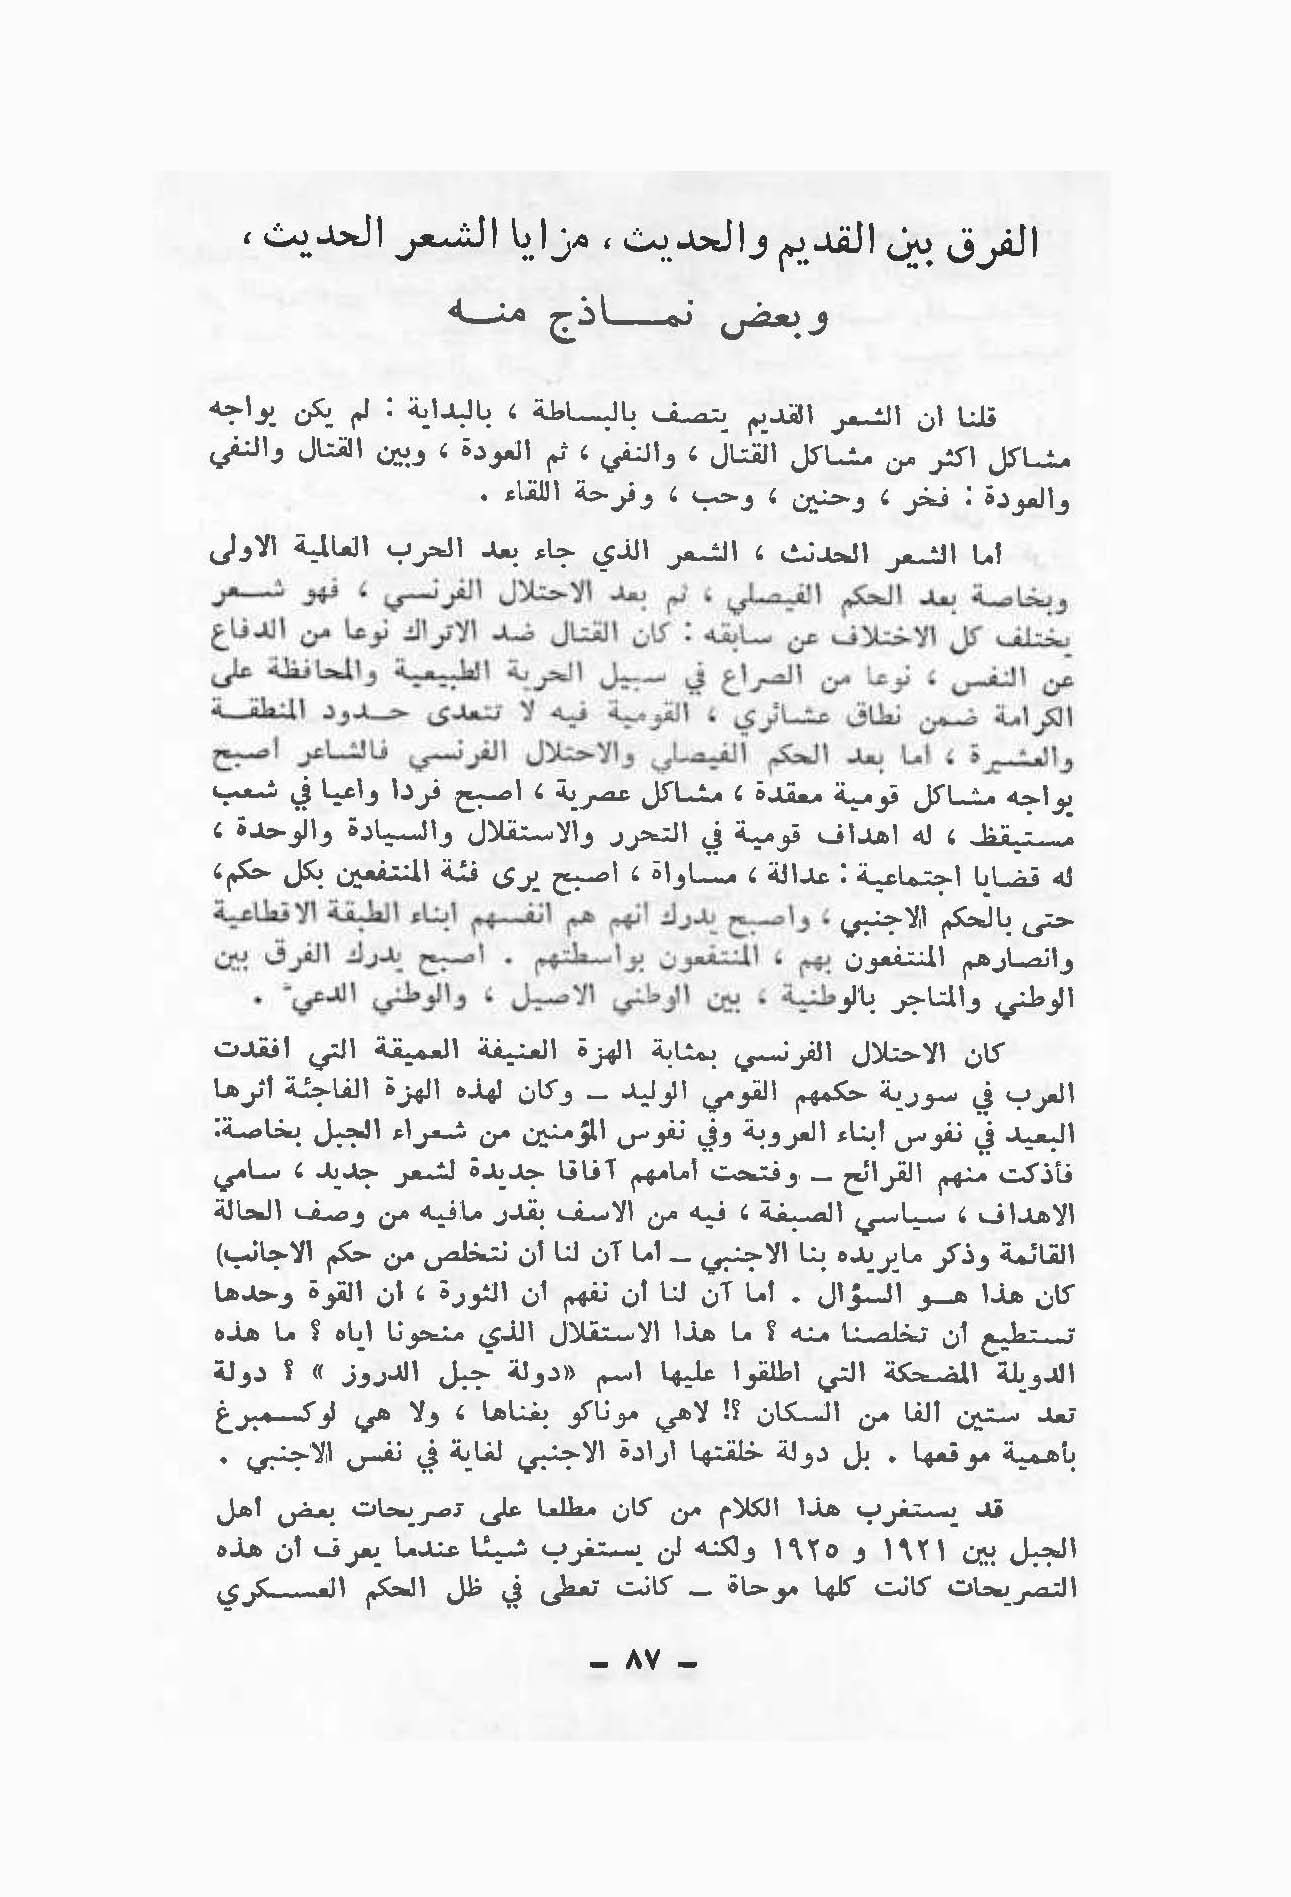 الفرق بين القديم والحديث، مزايا الشعر الحديث،
وبعض نمـــاذج منـه
قلنا ان الشعر القديم يتصف بالبساطة ، بالبداية : لم يكن يواجه
مشاكل اكثر من مشاكل القتال ، والنفي ، ثم العودة ، وبين القتال والنفي
والعودة : فخر ، وحنين ، وحب ، وفرحة اللقاء .
أما الشعر الحدنث ، الشعر الذي جاء بعد الحرب العالمية الاولى
وبخاصة بعد الحكم الفيصلي ، ثم بعد الاحتلال الفرنسي ، فهو شـعر
يختلف كل الاختلاف عن سابقه : كان القتال ضد الاتراك نوعا من الدفاع
عن النفس ، نوعا من الصراع في سبيل الحرية الطبيعية والمحافظة على
الكرامة ضمن نطاق عشائري ، القومية فيه لا تتعدى حـدود المنطقـة
والعشيرة ، اما بعد الحكم الفيصلي والاحتلال الفرنسي فالشاعر اصبح
يواجه مشاكل قومية معقدة ، مشاكل عصرية ، اصبح فردا واعيا في شعب
مستيقظ ، له اهداف قومية في التحرر والاستقلال والسيادة والوحدة ،
له قضايا اجتماعية : عدالة ، مساواة ، اصبح يرى فئة المنتفعين بكل حكم،
حتى بالحكم الاجنبي ، واصبح يدرك انهم هم انفسهم ابناء الطبقة الاقطاعية
وانصارهم المنتفعون بهم ، المنتفعون بواسطتهم . اصبح يدرك الفرق بين
الوطني والمتاجر بالوطنية ، بين الوطني الاصيل ، والوطني الدعيّ .
كان الاحتلال الفرنسي بمثابة الهزة العنيفة العميقة التي أفقدت
العرب في سورية حكمهم القومي الوليد – وكان لهذه الهزة الفاجئة أثرها
البعيد في نفوس أبناء العروبة وفي نفوس المؤمنين من شعراء الجبل بخاصة:
فأذكت منهم القرائح – وفتحت أمامهم آفاقا جديدة لشعر جديد ، سامي
الاهداف ، سياسي الصبغة ، فيه من الاسف بقدر مافيه من وصف الحالة
القائمة وذكر مايريده بنا الاجنبي – أما آن لنا أن نتخلص من حكم الاجانب)
كان هذا هـو السؤال . أما آن لنا أن نفهم أن الثورة ، أن القوة وحدها
تستطيع أن تخلصنا منه ؟ ما هذا الاستقلال الذي منحونا اياه ؟ ما هذه
الدويلة المضحكة التي اطلقوا عليها اسم «دولة جبل الدروز » ؟ دولة
تعد ستين الفا من السكان ؟! لاهي موناكو بغناها ، ولا هي لوكسمبرغ
بأهمية موقعها . بل دولة خلقتها ارادة الاجنبي لغاية في نفس الاجنبي .
قد يستغرب هذا الكلام من كان مطلعا على تصريحات بعض أهل
الجبل بين ١٩٢١ و ١٩٢٥ ولكنه لن يستغرب شيئا عندما يعرف أن هذه
التصريحات كانت كلها موحاة – كانت تعطى في ظل الحكم العسـكري
– ٨٧ –